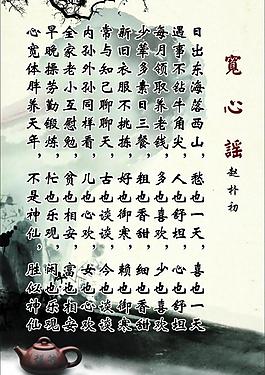 寬心謠
赵朴初
日出东海落西山，愁也一天，喜也一天
遇事不钻牛角尖，人也舒坦，心也舒坦
每月领取养老钱，多也喜欢，少也喜欢
少荤多素日三餐，粗也香甜，细也香甜
新旧衣服不挑拣，好也御寒，赖也御寒
常与知己聊聊天，古也谈谈，今也谈谈
内孙外孙同样看，儿也心欢，女也心欢
全家老小互慰勉，贫也相安，富也相安
早晚操劳勤锻炼，忙也乐观，闲也乐观
心宽体胖养天年，不是神仙，胜似神仙